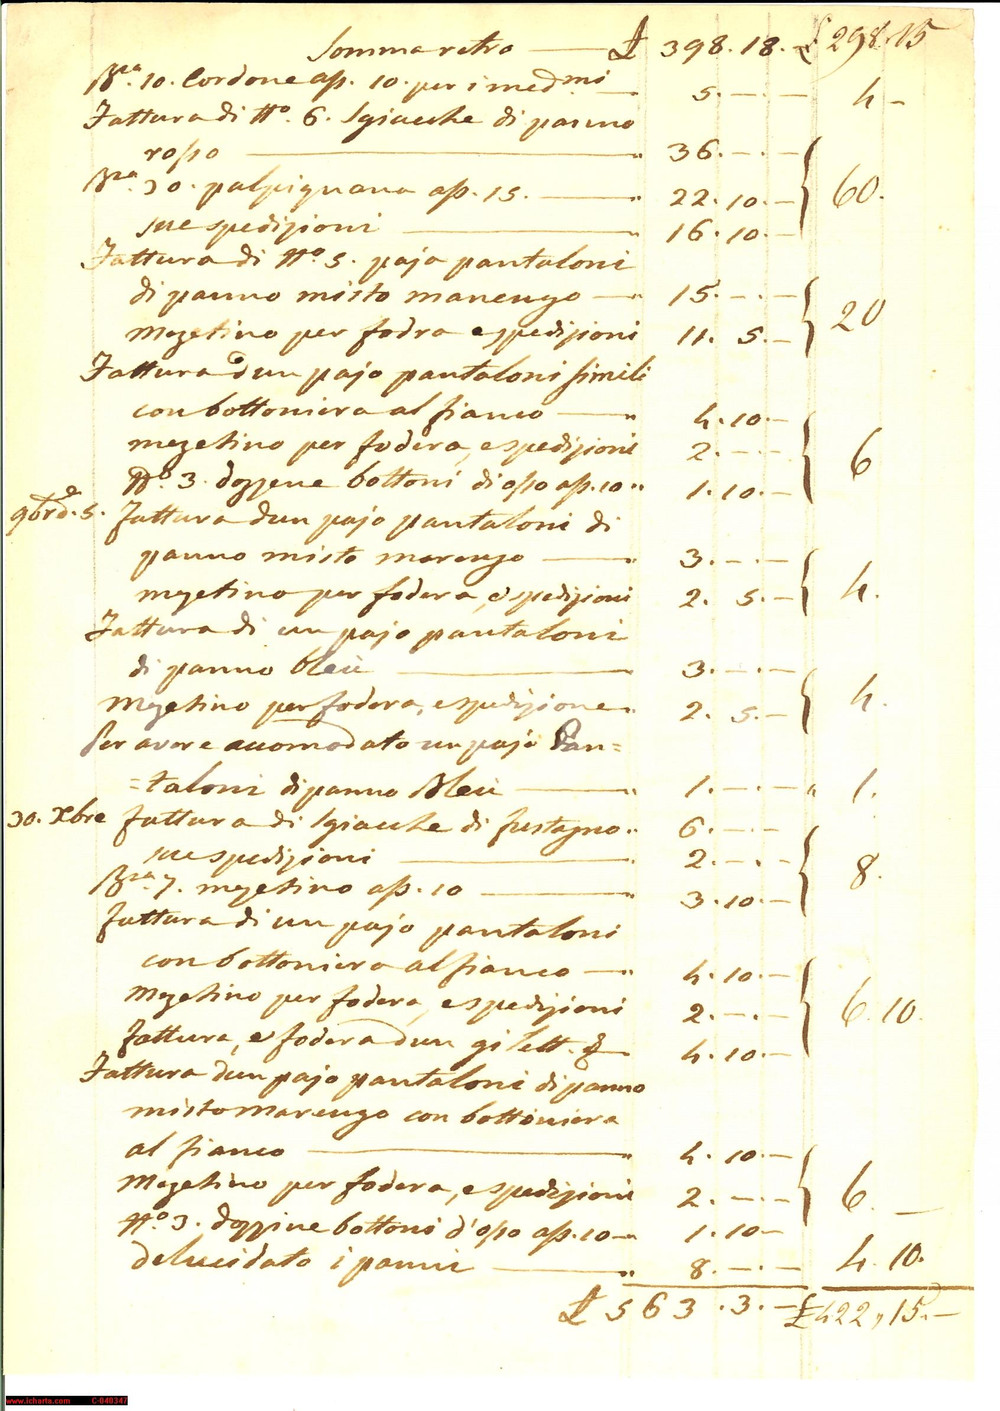 Somma retro — £ 398. 18. — £ 298. 15
Bra. 10. Cordone ap. 10. per i medmi — 5. — . — 4 —
Fattura di No. 6. Sgiacche di panno
rosso — 36. — . —
Bra. 30. palpignana ap. 15. — 22. 10. — } 60.
sue spedizioni — 16. 10. —
Fattura di No. 5. paja pantaloni
di panno misto marengo — 15. — . —
mezetino per fodra e spedizioni 11. 5. — } 20
Fattura d'un pajo pantaloni simili
con bottoniera al fianco — 4. 10. —
mezetino per fodera, e spedizioni 2. — . — } 6
No. 3. dozzene bottoni di osso ap. 10 " 1. 10. —
9bre d. 5. fattura d'un pajo pantaloni di
panno misto marengo — 3. — . —
mezetino per fodera, e spedizioni 2. 5. — } 4.
Fattura di un pajo pantaloni
di panno bleù — 3. — . —
Mezetino per fodera, e spedizione " 2. 5. — } 4.
Per avere accomodato un pajo Pan=
=taloni di panno Bleù — 1. — . — " 1.
30. Xbre fattura di Sgiacche di fustagno " 6. — . —
sue spedizioni — 2. — . — } 8.
Bra. 7. mezetino ap. 10 — 3. 10. —
fattura di un pajo pantaloni
con bottoniera al fianco — 4. 10. —
Mezetino per fodera, e spedizioni 2. — . — } 6. 10.
fattura, e fodera d'un gilett. — 4. 10. —
Fattura d'un pajo pantaloni di panno
misto marengo con bottoniera
al fianco — 4. 10. —
Mezetino per fodera, e spedizioni 2. — . — } 6. —
No. 3. dozzine bottoni d'osso ap. 10 — 1. 10 —
delucidato i panni — 8. — . — 4. 10.
£ 563. 3. — £ 422, 15. —
www.icharta.com C-040347